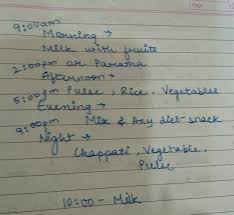 9:00am
Morning →
Milk with fruits
or Paratha
2:00pm
Afternoon →
Pulse, Rice, Vegetables
5:00pm
Evening →
Milk & Any diet snack
9:00pm
Night →
Chappati, Vegetable,
Pulse
10:00 - Milk